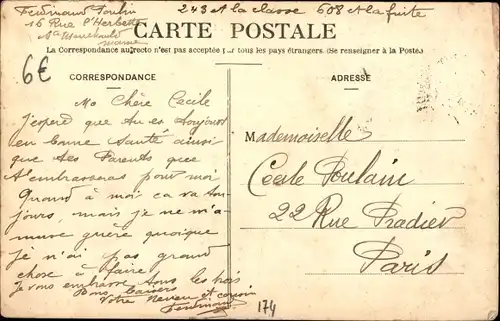 243 et la classe 608 et la fuite
16 Rue
Marne
CARTE POSTALE
La Correspondance au recto n'est pas acceptée par tous les pays étrangers. (Se renseigner à la Poste.)
6€
CORRESPONDANCE
Ma Chère Cécile
J'espère que tu es toujours
en bonne santé ainsi
que tes Parents que
tu embrasseras pour moi
Quand à moi ca va tou-
jours, mais je ne m'a-
muse guère quoique
je n'ai pas grand
chose à faire
Je vous embrasse tous les trois
Bons baisers
Votre neveu et cousin
Ferdinand
174
ADRESSE
Mademoiselle
Cecile Poulain
22 Rue Pradier
Paris